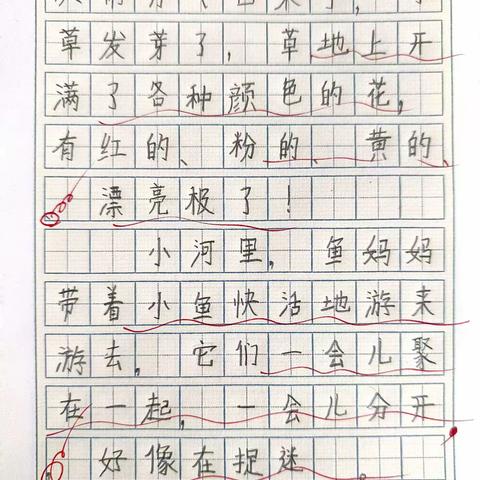 草发芽了，草地上开
满了各种颜色的花，
有红的、粉的、黄的、
漂亮极了！
小河里，鱼妈妈
带着小鱼快活地游来
游去，它们一会儿聚
在一起，一会儿分开
好像在捉迷